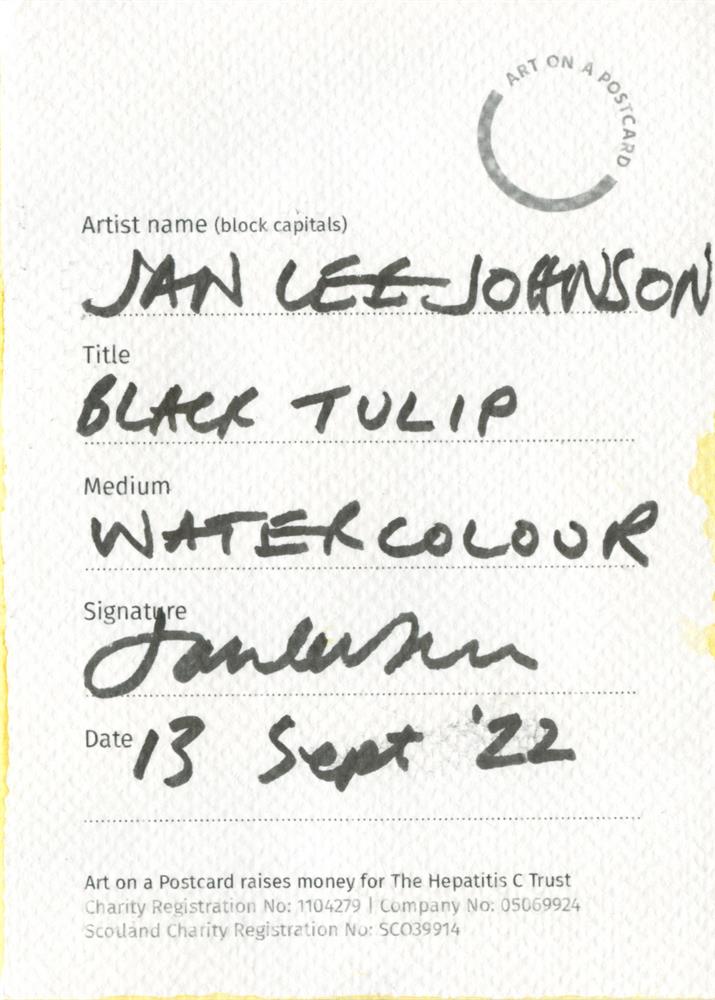 ART ON A POSTCARD
Artist name (block capitals)
JAN LEE JOHNSON
Title
BLACK TULIP
Medium
WATERCOLOUR
Signature
Date 13 Sept '22
Art on a Postcard raises money for The Hepatitis C Trust
Charity Registration No: 1104279 | Company No: 05069924
Scotland Charity Registration No: SCO39914